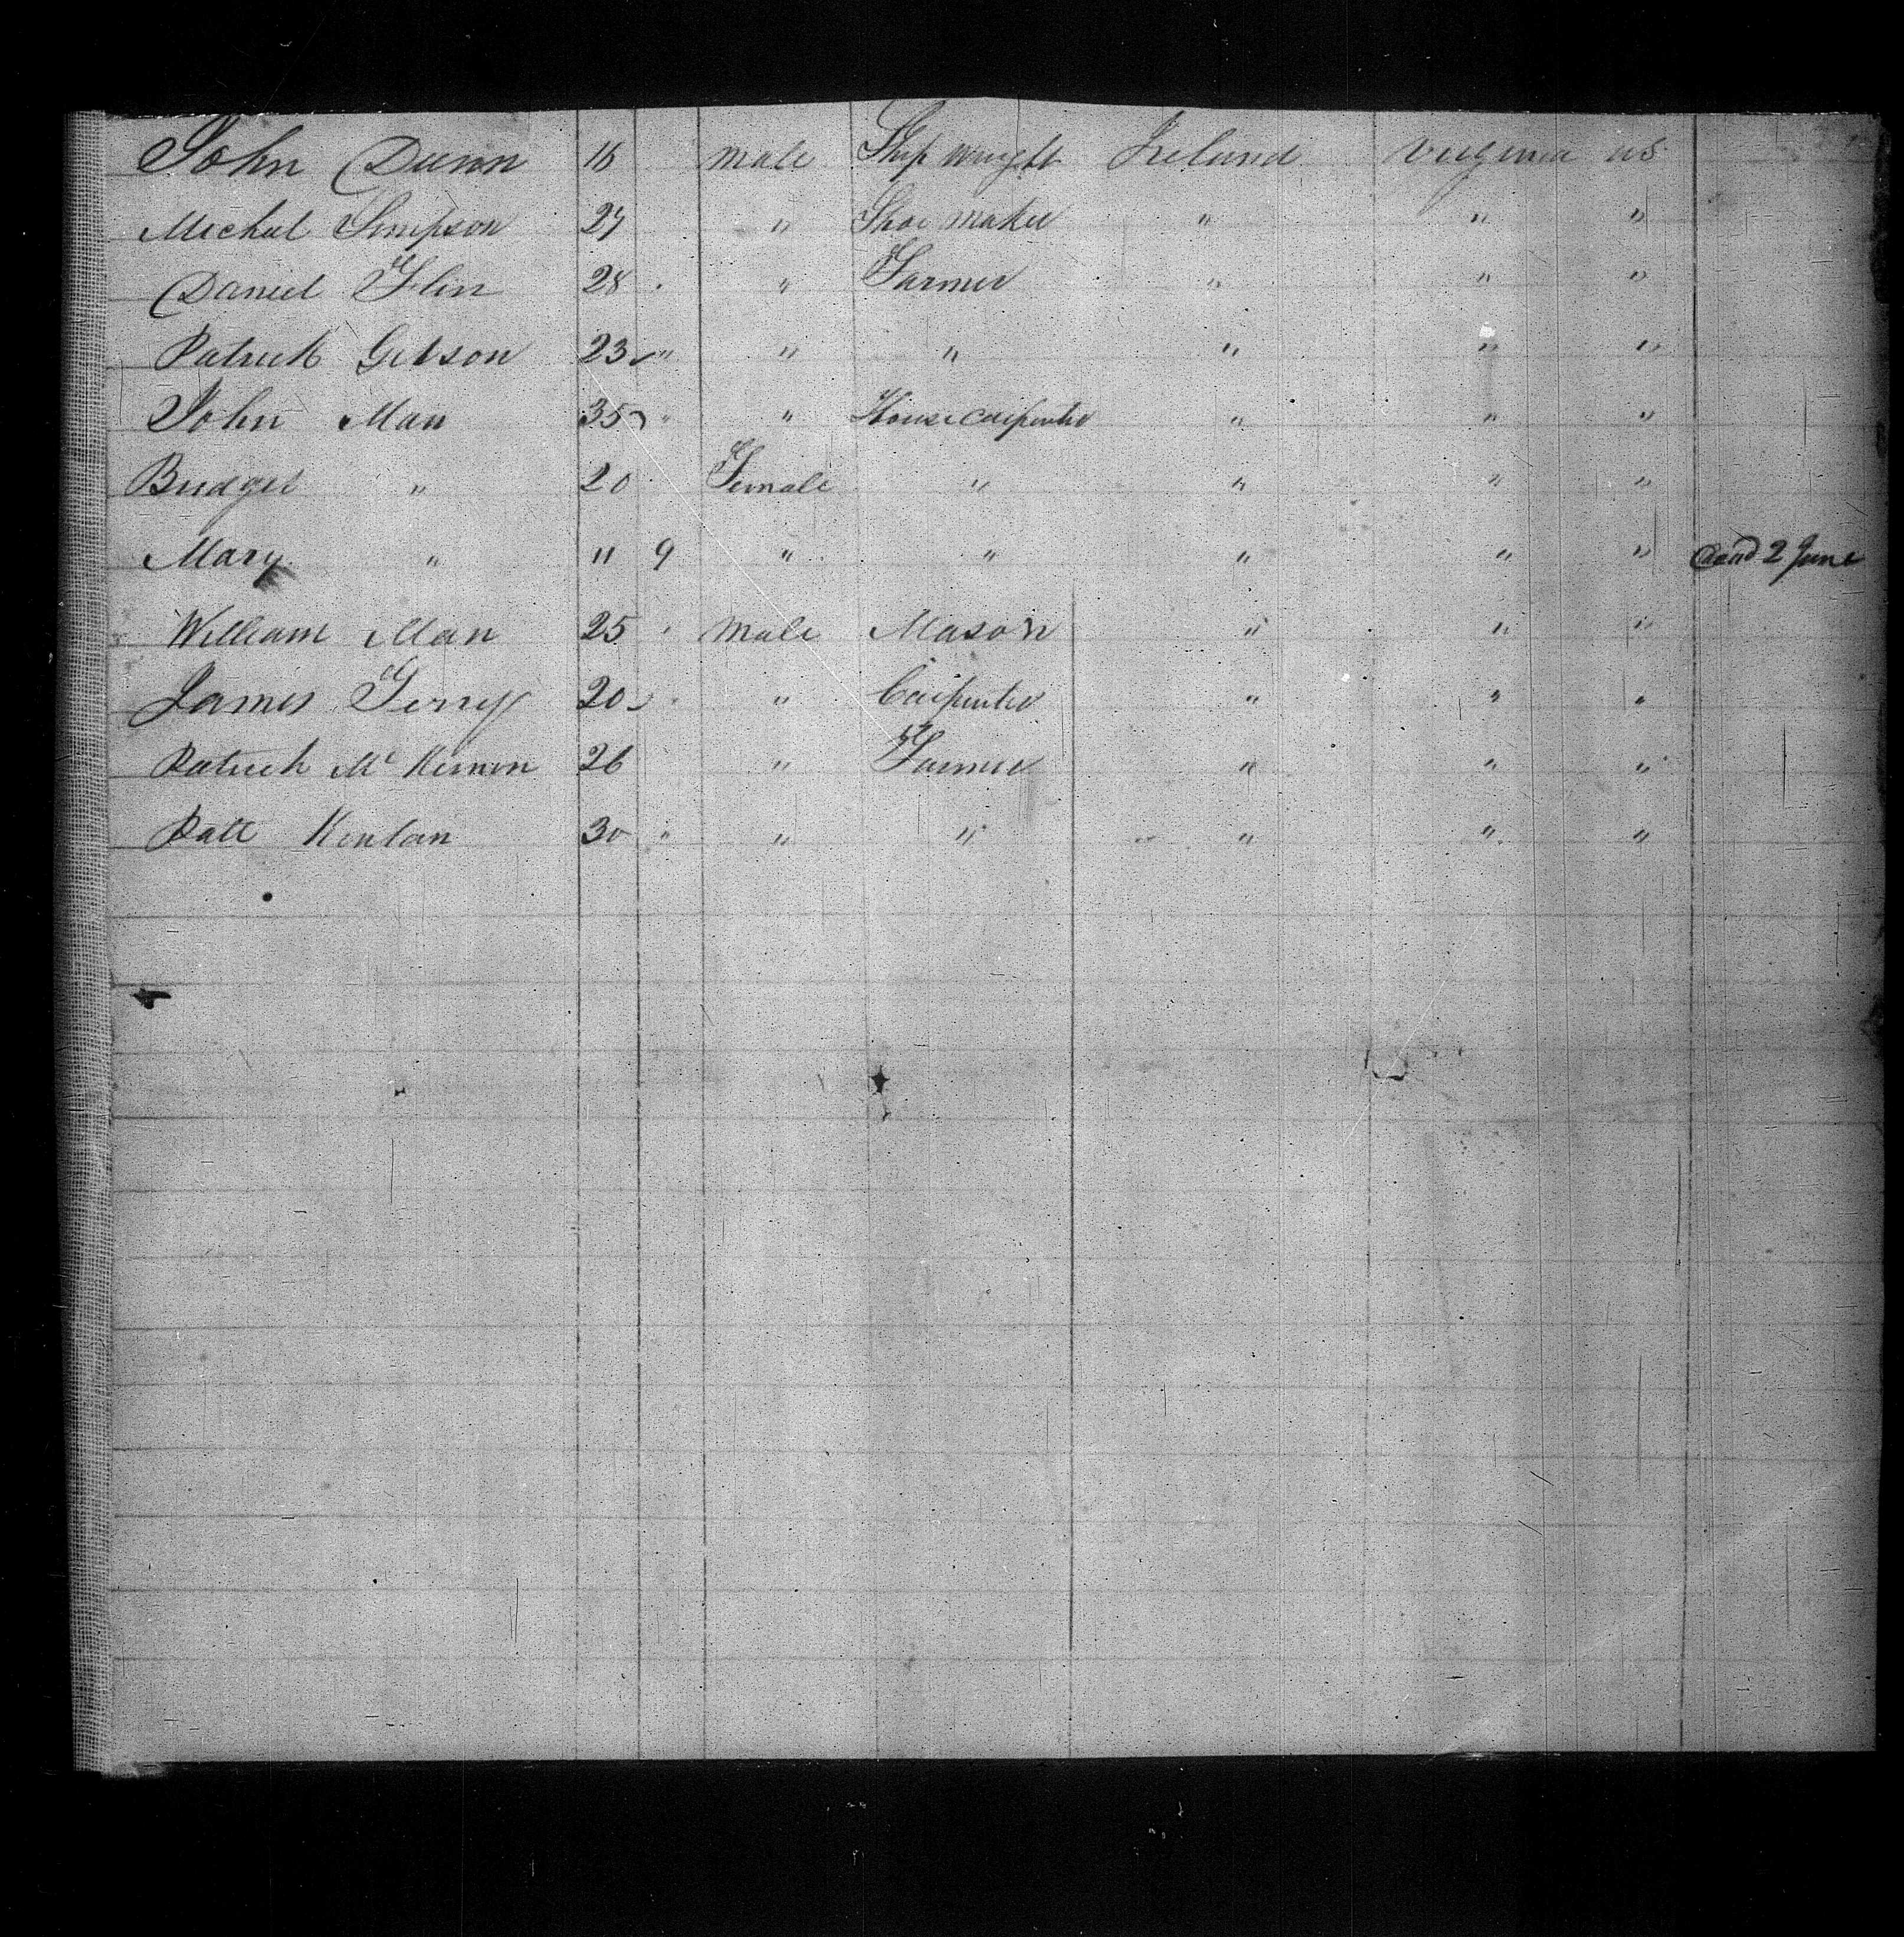 John Dunn 18 male Ship wright Ireland Virginia US
Michal Simpson 27 " Shoe maker " " "
Daniel Flin 28 " " Farmer " " "
Patrick Gibson 23 " " " " " "
John Man 35 " " House Carpenter " " "
Bridget " 20 Female " " " "
Mary " " 9 " " " " " Dead 2 June
William Man 25 " Male Mason " " "
James Ferry 20 " " Carpenter " " "
Patrick Mc Kernon 26 " Farmer " " "
Patt Kenlan 30 " " " " " "